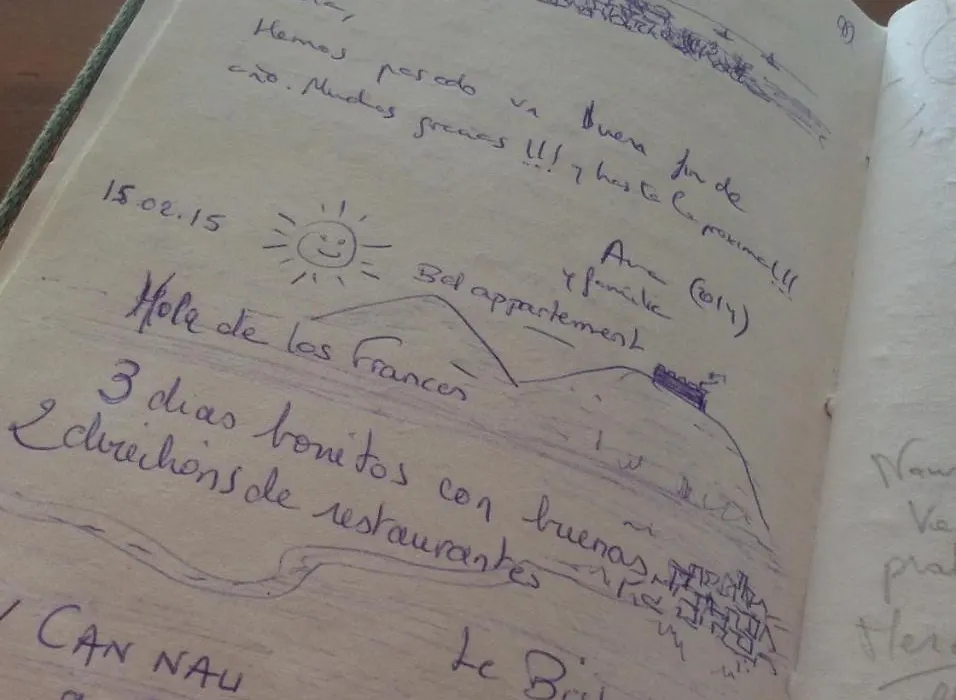 Hemos pasado un buen fin de
año. Muchas gracias !!! y hasta la próxima!!!
Ana (2014)
y familia
15.02.15
Bel appartement
Hola de los Frances
3 dias bonitos con buenas
2 directions de restaurantes
CAN NAU
Le